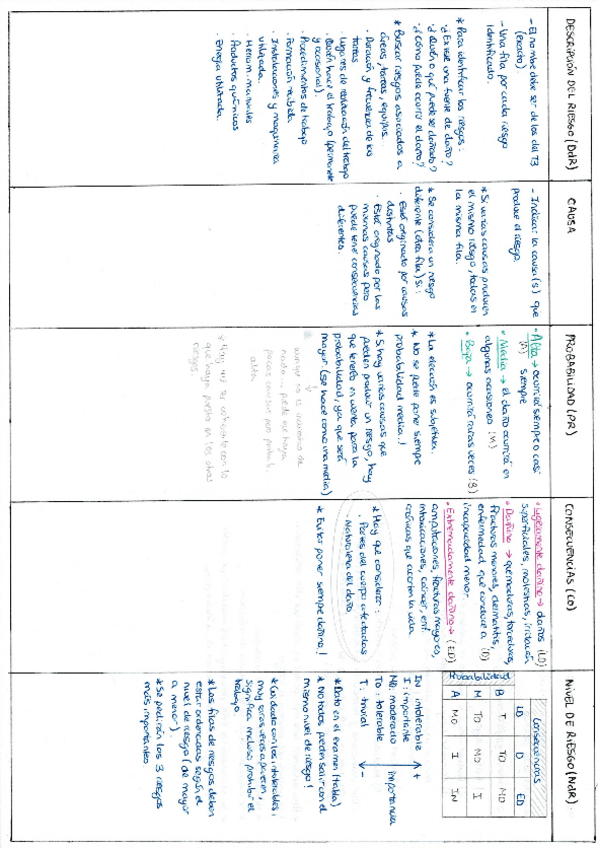 DESCRIPCIÓN DEL RIESGO (DdR)
- El nombre debe ser de los del T3
(exacto).
- Una fila por cada riesgo
identificado.
* Para identificar los riesgos:
· ¿Existe una fuente de daño?
· ¿Quién o qué puede ser dañado?
· ¿Cómo puede ocurrir el daño?
* Buscar riesgos asociados a
áreas, tareas, equipos...
· Duración y frecuencia de las
tareas
· Lugares de realización del trabajo
· Quién hace el trabajo (permanente
y ocasional).
· Procedimientos de trabajo
· Formación recibida
· Instalaciones y maquinaria
utilizada.
· Herram. manuales
· Productos químicos
· Energía utilizada.
CAUSA
- Indicar la causa(s) que
produce el riesgo.
* Si varias causas producen
el mismo riesgo, todas en
la misma fila.
* Se considera un riesgo
diferente (otra fila) si:
· Esté originado por causas
distintas
· Esté originado por las
mismas causas pero
puede tener consecuencias
diferentes.
PROBABILIDAD (PR)
· Alta → ocurrirá siempre o casi
(A) siempre
· Media → el daño ocurrirá en
algunas ocasiones (M)
· Baja → ocurrirá raras veces (B)
* La elección es subjetiva.
* No se puede poner siempre
probabilidad media!
* Si hay varias causas que
pueden producir un riesgo, hay
que tenerlo en cuenta para la
probabilidad, ya que será
mayor (se hace como una media)
aunque no
alta.
* Hay que ser coherente con lo
que haya puesto en las otras
riesgos
CONSECUENCIAS (CO)
· Ligeramente dañino → daños (LD)
superficiales, molestias, irritación
· Dañino → quemaduras, torceduras,
fracturas menores, dermatitis,
enfermedad que conduce a (D)
incapacidad menor.
· Extremadamente dañino → (ED)
amputaciones, fracturas mayores,
intoxicaciones, cáncer, enf.
crónicas que acorten la vida.
* Hay que considerar:
· Partes del cuerpo afectadas
· Naturaleza del daño.
* Evitar poner siempre dañino!
NIVEL DE RIESGO (NdR)
Consecuencias
LD D ED
Probabilidad
B T TO MO
M TO MO I
A MO I IN
IN: intolerable +
I: importante
MO: moderado importancia
TO: tolerable
T: trivial -
* Dato en el examen (tabla)
* No todos pueden salir con el
mismo nivel de riesgo!
* Cuidado con los intolerables;
muy raras veces aparecen,
significa incluso prohibir el
trabajo
* Las filas de riesgos deben
estar ordenadas según el
nivel de riesgo (de mayor
a menor).
* Se pedirán los 3 riesgos
más importantes